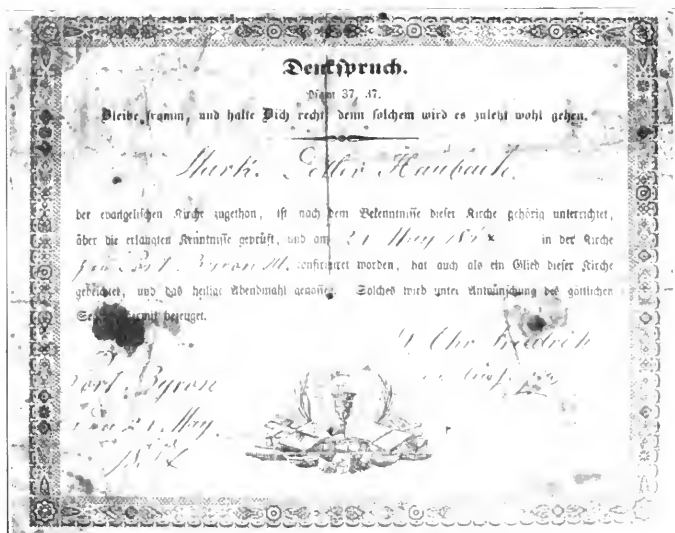 Denkspruch.
Psalm 37, 37.
Bleibe fromm, und halte Dich recht, denn solchem wird es zuletzt wohl gehen.
Haubach
der evangelischen Kirche zugethon, ist nach dem Bekenntnisse dieser Kirche gehörig unterrichtet,
über die erlangten Kenntnisse geprüft, und am 21 May in der Kirche
Port Byron confirmiret worden, hat auch als ein Glied dieser Kirche
gebeichtet, und das heilige Abendmahl genossen. Solches wird unter Anwünschung des göttlichen
hiermit bezeuget.
Chr. Friedrich
Port Byron
21 May